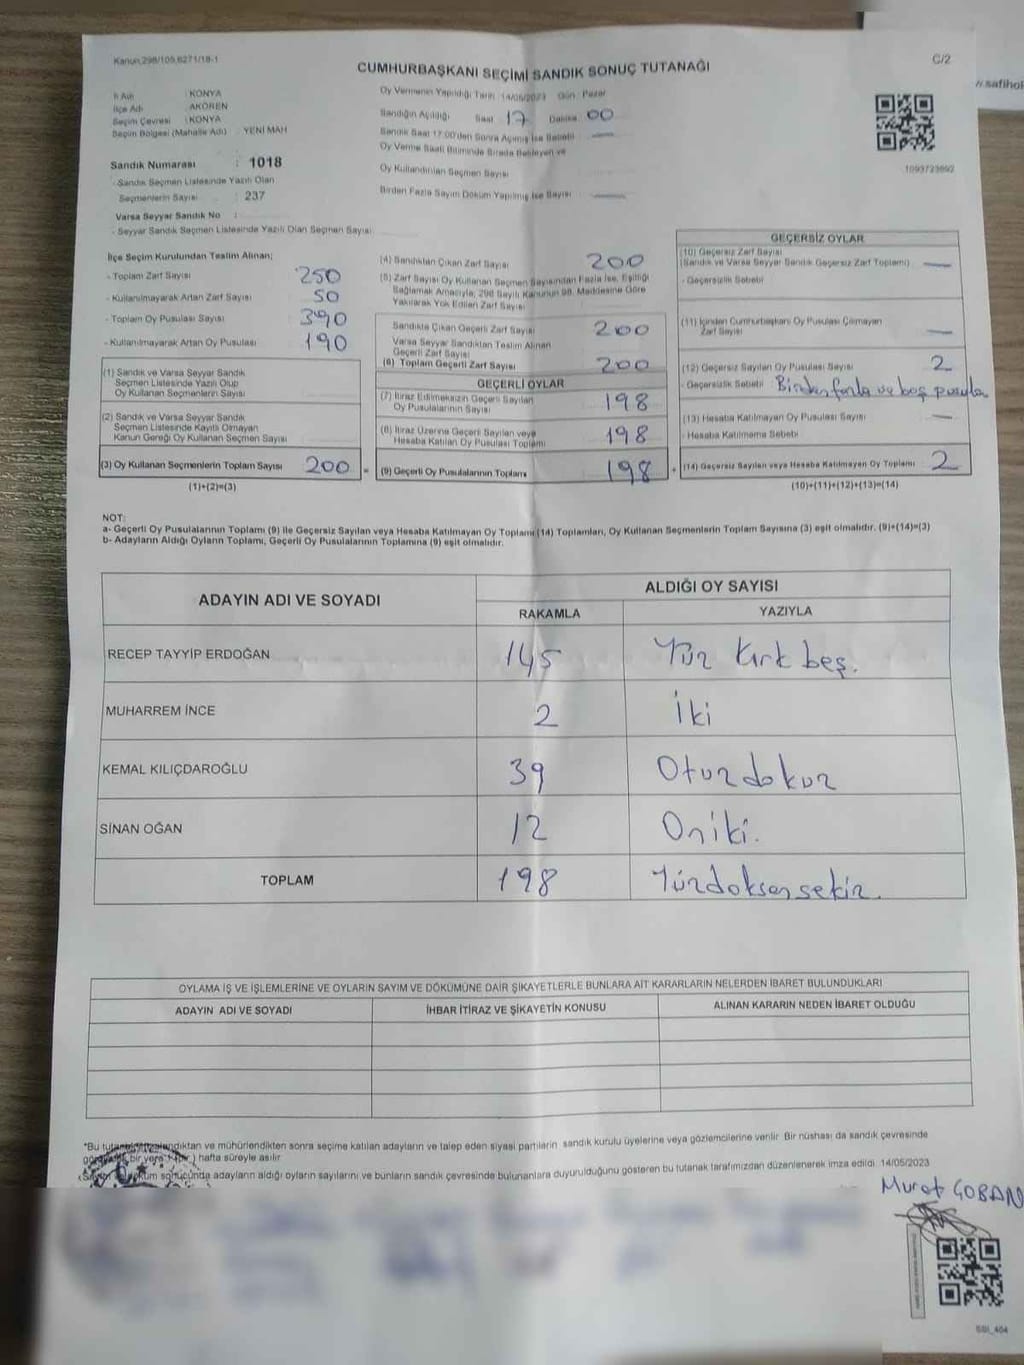 Kanun,298/105,6271/18-1
CUMHURBAŞKANI SEÇİMİ SANDIK SONUÇ TUTANAĞI
C/2
İl Adı : KONYA
İlçe Adı : AKÖREN
Seçim Çevresi : KONYA
Seçim Bölgesi (Mahalle Adı) : YENİ MAH
Sandık Numarası : 1018
- Sandık Seçmen Listesinde Yazılı Olan
Seçmenlerin Sayısı : 237
Varsa Seyyar Sandık No :
- Seyyar Sandık Seçmen Listesinde Yazılı Olan Seçmen Sayısı:
Oy Vermenin Yapıldığı Tarih 14/05/2023 Gün Pazar
Sandığın Açıldığı Saat 17 Dakika 00
Sandık Saat 17:00'den Sonra Açılmış İse Sebebi
Oy Verme Saati Bitiminde Sırada Bekleyen ve
Oy Kullandırılan Seçmen Sayısı
Birden Fazla Sayım Döküm Yapılmış İse Sayısı
1093723692
İlçe Seçim Kurulundan Teslim Alınan;
- Toplam Zarf Sayısı 250
- Kullanılmayarak Artan Zarf Sayısı 50
- Toplam Oy Pusulası Sayısı 390
- Kullanılmayarak Artan Oy Pusulası 190
(1) Sandık ve Varsa Seyyar Sandık
Seçmen Listesinde Yazılı Olup
Oy Kullanan Seçmenlerin Sayısı
(2) Sandık ve Varsa Seyyar Sandık
Seçmen Listesinde Kayıtlı Olmayan
Kanun Gereği Oy Kullanan Seçmen Sayısı
(3) Oy Kullanan Seçmenlerin Toplam Sayısı 200 =
(1)+(2)=(3)
(4) Sandıktan Çıkan Zarf Sayısı 200
(5) Zarf Sayısı Oy Kullanan Seçmen Sayısından Fazla İse, Eşitliği
Sağlamak Amacıyla, 298 Sayılı Kanunun 98. Maddesine Göre
Yakılarak Yok Edilen Zarf Sayısı
Sandıkta Çıkan Geçerli Zarf Sayısı 200
Varsa Seyyar Sandıktan Teslim Alınan
Geçerli Zarf Sayısı
(6) Toplam Geçerli Zarf Sayısı 200
GEÇERLİ OYLAR
(7) İtiraz Edilmeksizin Geçerli Sayılan
Oy Pusulalarının Sayısı 198
(8) İtiraz Üzerine Geçerli Sayılan veya
Hesaba Katılan Oy Pusulası Toplamı 198
(9) Geçerli Oy Pusulalarının Toplamı 198 +
GEÇERSİZ OYLAR
(10) Geçersiz Zarf Sayısı
(Sandık ve Varsa Seyyar Sandık Geçersiz Zarf Toplamı)
- Geçersizlik Sebebi
(11) İçinden Cumhurbaşkanı Oy Pusulası Çıkmayan
Zarf Sayısı
(12) Geçersiz Sayılan Oy Pusulası Sayısı 2
- Geçersizlik Sebebi Birden fazla ve boş pusula
(13) Hesaba Katılmayan Oy Pusulası Sayısı
- Hesaba Katılmama Sebebi
(14) Geçersiz Sayılan veya Hesaba Katılmayan Oy Toplamı 2
(10)+(11)+(12)+(13)=(14)
NOT:
a- Geçerli Oy Pusulalarının Toplamı (9) ile Geçersiz Sayılan veya Hesaba Katılmayan Oy Toplamı (14) Toplamları, Oy Kullanan Seçmenlerin Toplam Sayısına (3) eşit olmalıdır. (9)+(14)=(3)
b- Adayların Aldığı Oyların Toplamı, Geçerli Oy Pusulalarının Toplamına (9) eşit olmalıdır.
ADAYIN ADI VE SOYADI
ALDIĞI OY SAYISI
RAKAMLA YAZIYLA
RECEP TAYYİP ERDOĞAN 145 Yüz kırk beş.
MUHARREM İNCE 2 İki
KEMAL KILIÇDAROĞLU 39 Otuzdokuz
SİNAN OĞAN 12 Oniki.
TOPLAM 198 Yüzdoksensekiz.
OYLAMA İŞ VE İŞLEMLERİNE VE OYLARIN SAYIM VE DÖKÜMÜNE DAİR ŞİKAYETLERLE BUNLARA AİT KARARLARIN NELERDEN İBARET BULUNDUKLARI
ADAYIN ADI VE SOYADI İHBAR İTİRAZ VE ŞİKAYETİN KONUSU ALINAN KARARIN NEDEN İBARET OLDUĞU
sonra seçime katılan adayların ve talep eden siyasi partilerin sandık kurulu üyelerine veya gözlemcilerine verilir. Bir nüshası da sandık çevresinde
hafta süreyle asılır
adayların aldığı oyların sayılarını ve bunların sandık çevresinde bulunanlara duyurulduğunu gösteren bu tutanak tarafımızdan düzenlenerek imza edildi. 14/05/2023
Murat ÇOBAN
SSI_404